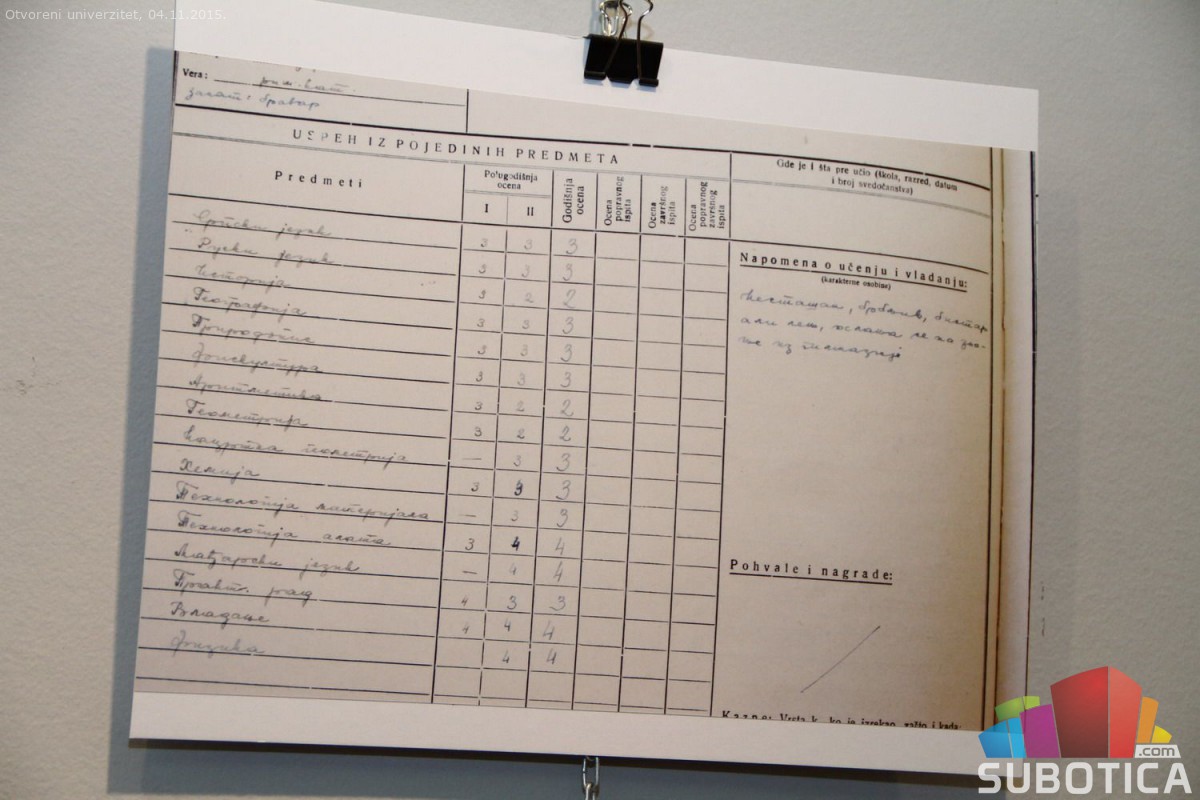 Otvoreni univerzitet, 04.11.2015.
Vera: рим. кат.
занат: бравар
USPEH IZ POJEDINIH PREDMETA
Predmeti
Polugodišnja ocena
I II
Godišnja ocena
Ocena popravnog ispita
Ocena završnog ispita
Ocena popravnog završnog ispita
Српски језик 3 3 3
Руски језик 3 3 3
Историја 3 2 2
Географија 3 3 3
Природопис 3 3 3
Фискултура 3 3 3
Аритметика 3 2 2
Геометрија 3 2 2
Нацртна геометрија — 3 3
Хемија 3 3 3
Технологија материјала — 3 3
Технологија алата 3 4 4
Мађарски језик — 4 4
Практ. рад 4 3 3
Владање 4 4 4
Физика 4 4
Gde je i šta pre učio (škola, razred, datum
i broj svedočanstva)
Napomena o učenju i vladanju:
(karakterne osobine)
Несташан, брбљив, бистар
али лењ,
Pohvale i nagrade:
Kazne: Vrsta k. ko je izrekao, zašto i kada:
SUBOTICA
.com